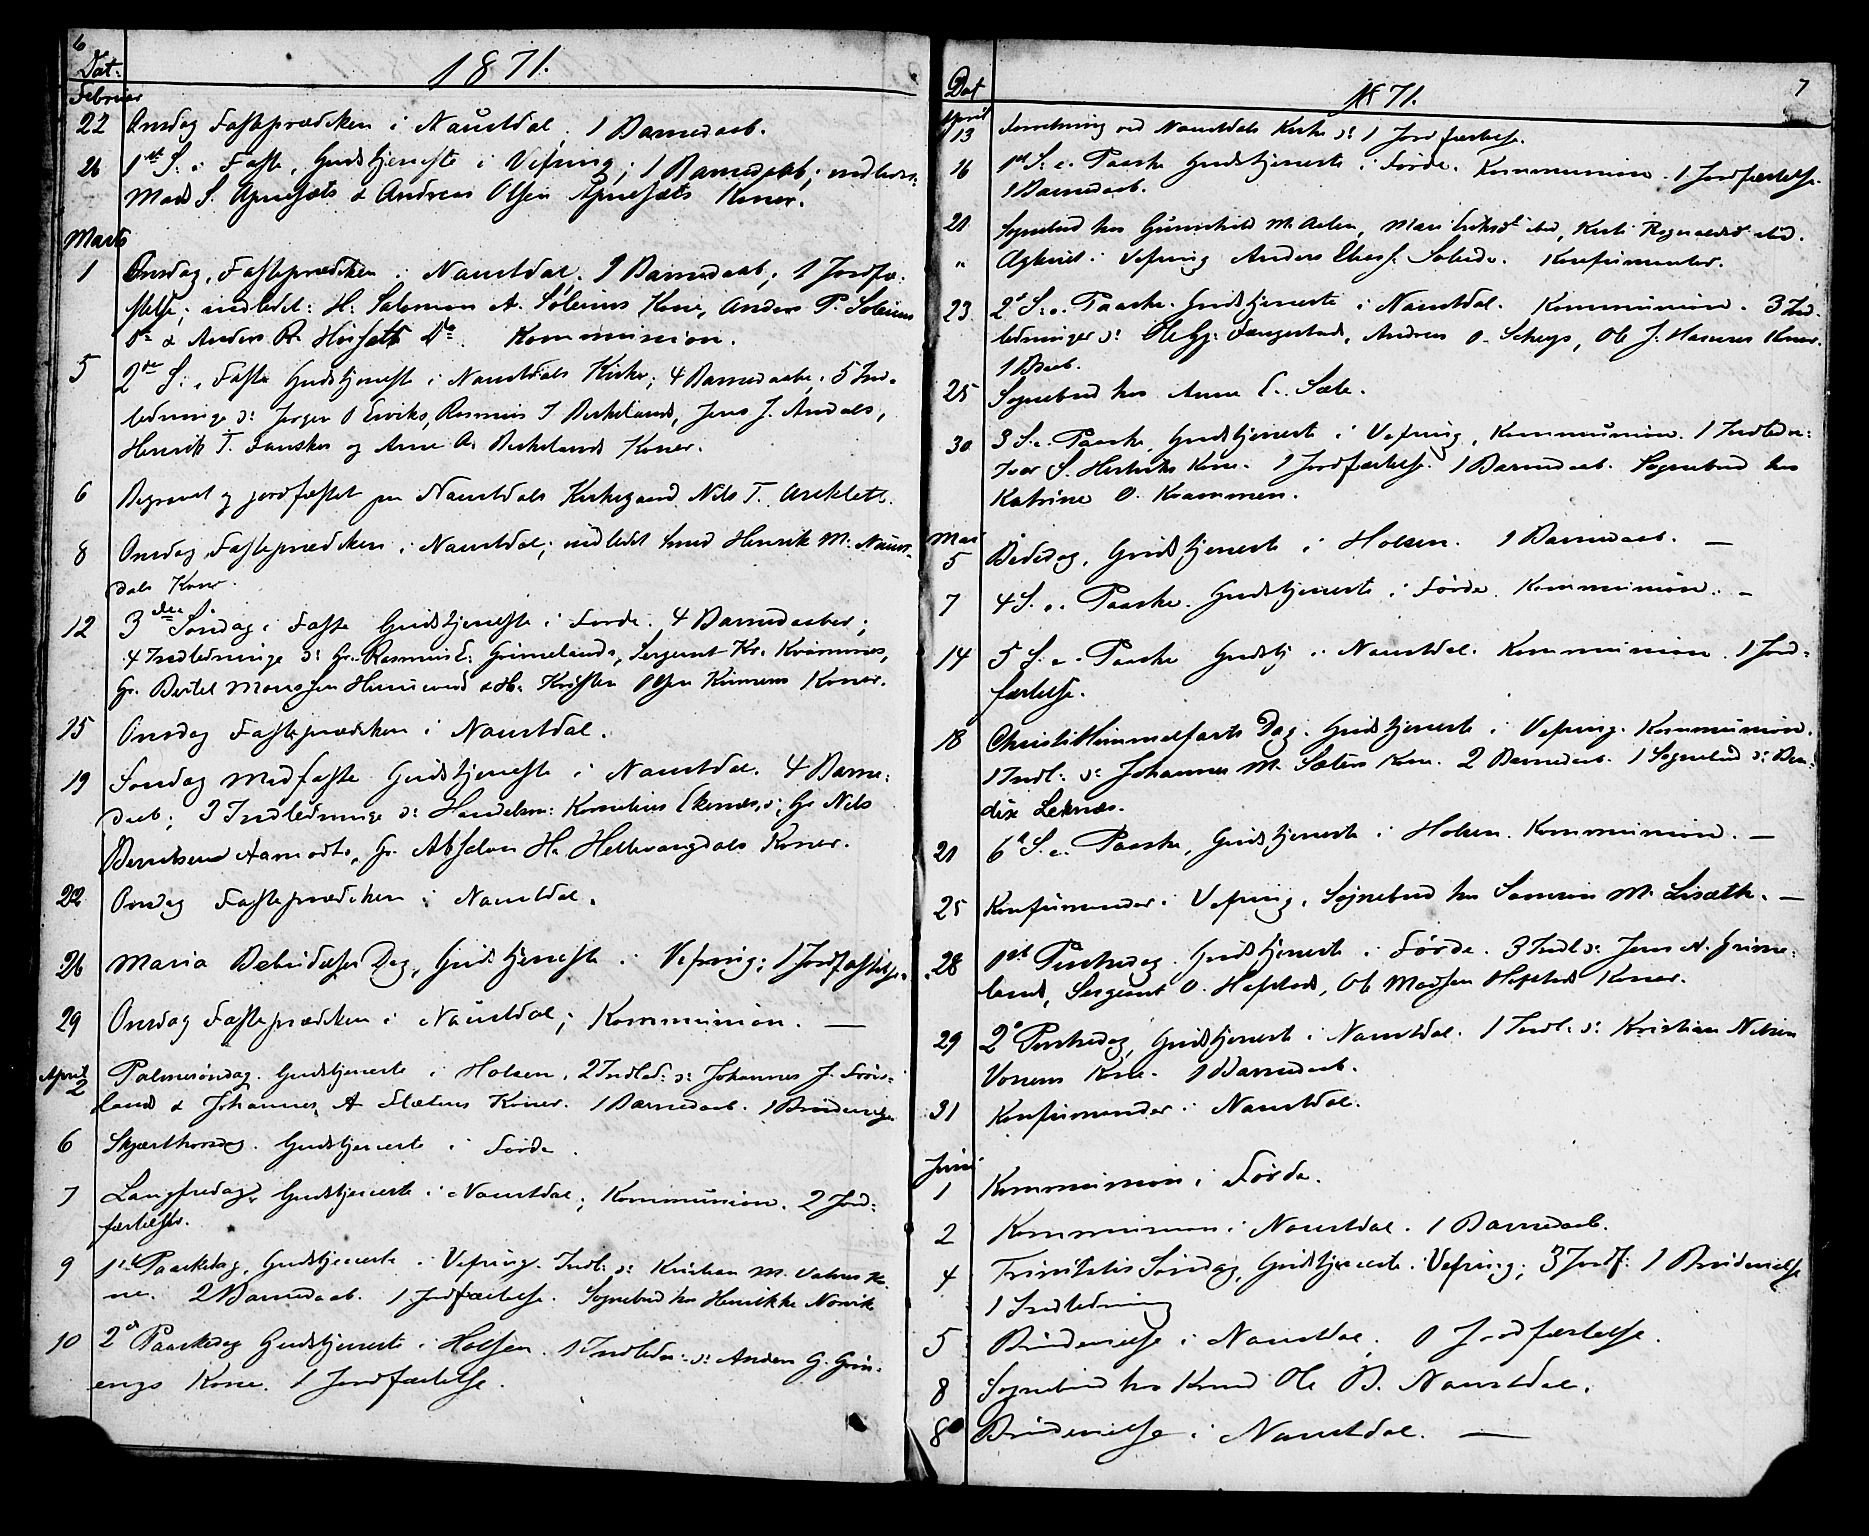 6
Dat:
1871.
Februar
22 Onsdag Fasteprædiken i Naustdal. 1 Barnedaab.
26 1ste S. i Faste, Gudstjeneste i Vefring; 1 Barnedaab; indledet:
Mads S. & Andreas Olsen Koner.
Marts
1 Onsdag, Fasteprædiken i Naustdal. 1 Barnedaab; 1 Jordfæ-
stelse; indledet: H. Salomon A. Soleims Kone, Anders P. Soleims
Do & Anders R. Do. Kommunion.
5 2den S. i Faste Gudstjeneste i Naustdals Kirke; 4 Barnedaabe. 5 Ind-
ledninge ɔ: Jørgen O Erviks, Rasmus J Birkelands, Jens J. Andals,
Henrik T. og Arne A. Birkelands Koner.
6 Begravet og jordfæstet paa Naustdals Kirkegaard Nils T.
8 Onsdag Fasteprædiken i Naustdal; indledet Smed Henrik M. Naust-
dals Kone.
12 3die Søndag i Faste Gudstjeneste i Førde. 4 Barnedaaber;
4 Indledninge ɔ: Gr. Rasmus E. Grimelands, Sergeant Kr.
Gr. Bertel Monssen & H. Kristen Olsen Koner.
15 Onsdag Fasteprædiken i Naustdal.
19 Søndag Midfaste Gudstjeneste i Naustdal. 4 Barne-
daab; 3 Indledninge ɔ: Kornelius Ekenæs; Gr. Nils
Berntsens Aamodts, Gr. Absalon H. Hellevangdals Koner.
22 Onsdag Fasteprædiken i Naustdal.
26 Maria Bebudelses Dag, Gudstjeneste i Vefring; 1 Jordfæstelse.
29 Onsdag Fasteprædiken i Naustdal; Kommunion. —
April
2 Palmesøndag. Gudstjeneste i Holsen. 2 Indled: ɔ: Johannes J.
lands & Johannes A. Koner. 1 Barnedaab. 1 Brudevielse
6 Skjærthorsdag. Gudstjeneste i Førde.
7 Langfredag Gudstjeneste i Naustdal; Kommunion. 2 Jord-
fæstelser.
9 1st Paaskedag, Gudstjeneste i Vefring. Indl: ɔ: Kristian M. Ko-
ne. 2 Barnedaab. 1 Jordfæstelse. Sognebud hos Henrikke
10 2d Paaskedag Gudstjeneste i Holsen. 1 Indledn: ɔ: Anders G. Grön-
engs Kone. 1 Jordfæstelse.
7
Dat
1871.
April
13 Forretning ved Naustdals Kirke ɔ: 1 Jordfæstelse.
16 1st S. e. Paaske Gudstjeneste i Førde. Kommunion. 1 Jordfæstelse.
1 Barnedaab.
21 Sognebud hos Gunnhild M.
" i Vefring Anders Konfirmanter.
23 2d S. e. Paaske. Gudstjeneste i Naustdal. Kommunion. 3 Ind-
ledninger ɔ: Andreas O. Ole J. Koner.
1 Bdaab.
25 Sognebud hos Anna E. Sæle.
30 3 S. e. Paaske Gudstjeneste i Vefring, Kommunion. 1 Indledn:
Ivar S. Kone. 1 Jordfæstelse. 1 Barnedaab. Sognebud hos
Katrine O. Krammen.
Mai
5 Bededag, Gudstjeneste i Holsen. 1 Barnedaab. —
7 4 S. e. Paaske. Gudstjeneste i Førde. Kommunion. –
14 5 S. e. Paaske Gudstj. i Naustdal. Kommunion. 1 Jord-
fæstelse.
18 Christi Himmelfarts Dag. Gudstjeneste i Vefring. Kommunion.
1 Indl: ɔ: Johannes M. Sæters Kone. 2 Barnedaab. 1 Sognebud ɔ: Ben-
dix Leknæs.
21 6te S. e. Paaske, Gudstjeneste i Holsen. Kommunion. —
25 Konfirmander i Vefring. Sognebud hos Samson M. —
28 1st Pintsedag. Gudstjeneste i Førde. 3 Indl ɔ: Jens N. Grime-
lands, Sergeant O. Hafstads, Ole Madsen Hafstads Koner.
29 2d Pintsedag, Gudstjeneste i Naustdal. 1 Indl: ɔ: Kristian Nilsen
Vonens Kone. 1 Barnedaab.
31 Konfirmander i Naustdal.
Juni
1 Kommunion i Førde.
2 Kommunion i Naustdal. 1 Barnedaab.
4 Trinitatis Søndag, Gudstjeneste i Vefring; 3 Jordf: 1 Brudevielse
1 Indledning
5 Brudevielse i Naustdal. 1 Jordfæstelse.
8 Sognebud hos Knud Ole B. Naustdal.
8 Brudevielse i Naustdal. —